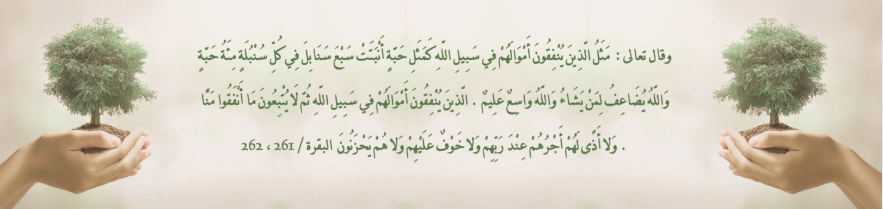 وقال تعالى : مَثَلُ الَّذِينَ يُنْفِقُونَ أَمْوَالَهُمْ فِي سَبِيلِ اللَّهِ كَمَثَلِ حَبَّةٍ أَنْبَتَتْ سَبْعَ سَنَابِلَ فِي كُلِّ سُنْبُلَةٍ مِئَةُ حَبَّةٍ
وَاللَّهُ يُضَاعِفُ لِمَنْ يَشَاءُ وَاللَّهُ وَاسِعٌ عَلِيمٌ . الَّذِينَ يُنْفِقُونَ أَمْوَالَهُمْ فِي سَبِيلِ اللَّهِ ثُمَّ لَا يُتْبِعُونَ مَا أَنْفَقُوا مَنًّا
. وَلَا أَذًى لَهُمْ أَجْرُهُمْ عِنْدَ رَبِّهِمْ وَلَا خَوْفٌ عَلَيْهِمْ وَلَا هُمْ يَحْزَنُونَ البقرة / 261 ، 262